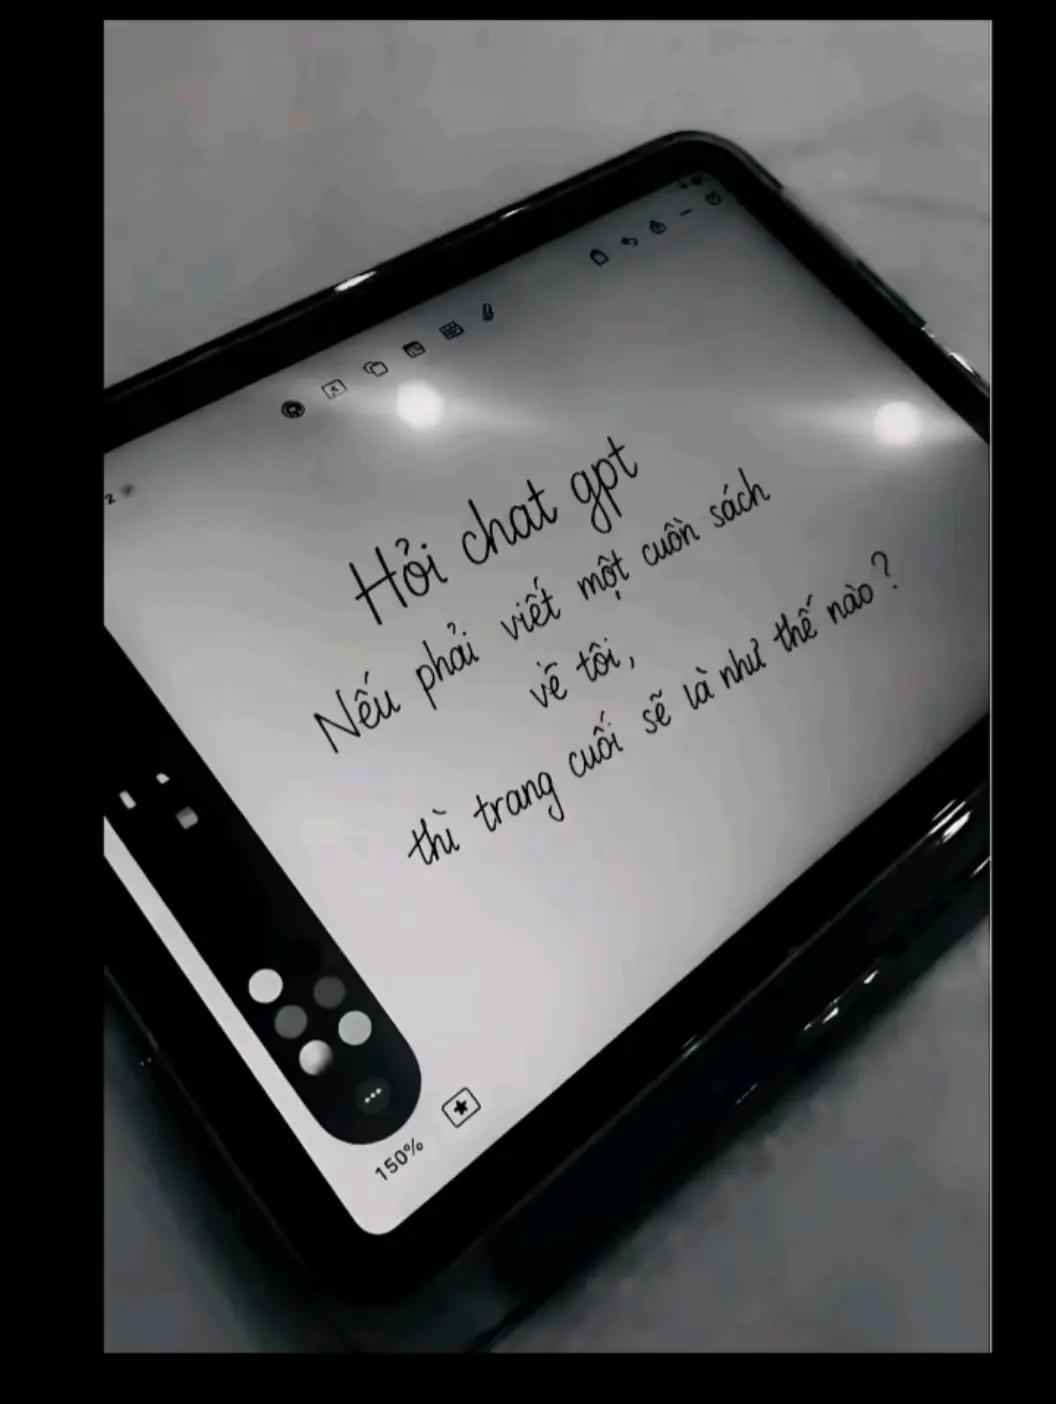 2
Hỏi chat gpt
Nếu phải viết một cuốn sách
về tôi,
thì trang cuối sẽ là như thế nào?
150%